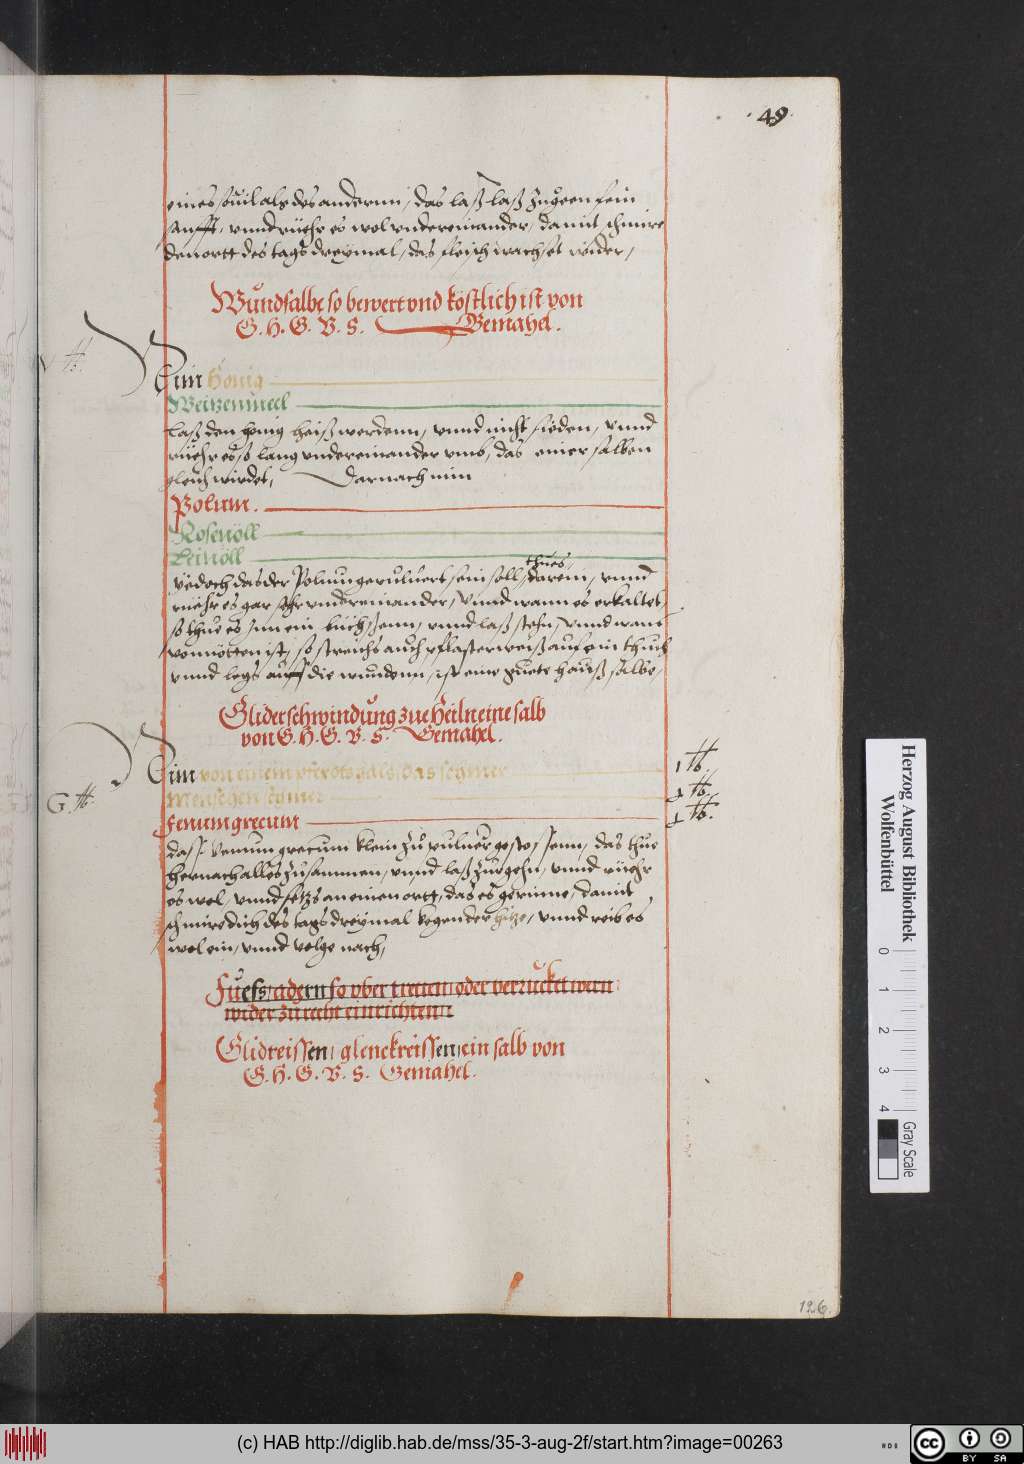 49
eines souil als des andernn, das laß laß zugeen fein
sanfft, vnnd rüehr es wol vndereinander, damit schmire
den ortt des tags dreymal, das fleisch wachset wider,
Wundsalbe so bewert vnd köstlich ist von
G. H. G. V. S. Gemahel.
Nim Honig
Weitzenmeel
laß den honig haiß werdenn, vnnd nicht sieden, vnnd
rüehr es so lang vndereinander vmb, das einer salben
gleich wirdet, Darnach nim
Polum.
Rosenöll
Leinöll
thues,
yedoch das der Polum gepuluert sein soll, darein, vnnd
rüehr es gar sehr vndereinander, Vnnd wann es erkaltet,
so thue es Inn ein büchsenn, vnnd laß stehn, Vnnd wann
vonnötten ist, so streichs auch pflasterweiß auf ein thuch
vnnd legs auff die wundenn, ist eine guete hauß salbe,
Gliderschwindung zue heiln eine salb
von G. H. G. V. S. Gemahel.
Nim von einem pferdts hals, das schmer 1 ℔.
G. ℔.
Menschen schmer 1 ℔.
Fenum grecum 1 ℔.
das Venum grecum klein zu puluer gestossenn, das thue
hernach alles zusammen, vnnd laß zurgehn, vnnd rüehr
es wol, vnnd setzs an einen ortt, das es gerinne, damit
schmire dich des tags dreymal kegen der hitze, vnnd reib es
wol ein, vnnd volge nach,
Fuess adern so vber tretten oder verruckt wern
wider zu recht einrichten
Glidreissen, glenckreissen, ein salb von
G. H. G. V. S. Gemahel.
126.
Herzog August Bibliothek
Wolfenbüttel
0 1 2 3 4
Gray Scale
(c) HAB http://diglib.hab.de/mss/35-3-aug-2f/start.htm?image=00263
cc BY SA